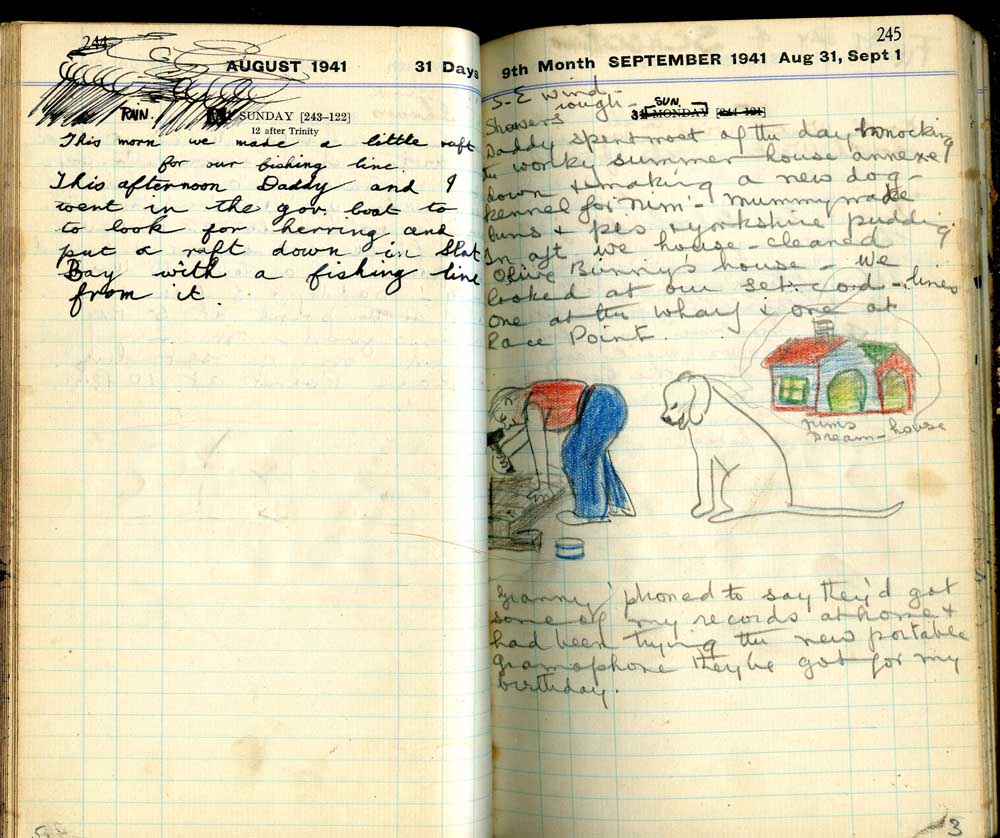 244
AUGUST 1941 31 Days
RAIN. SUNDAY [243-122]
12 after Trinity
This morn we made a little raft
for our fishing line.
This afternoon Daddy and I
went in the gov. boat to
to look for herring and
put a raft down in Slat
Bay with a fishing line
from it.
245
9th Month SEPTEMBER 1941 Aug 31, Sept 1
S-E wind -
rough -
Showers
SUN.
31 MONDAY [244-121]
Daddy spent most of the day knocking
the worky summer house annexe
down & making a new dog-
kennel for Nim - Mummy made
buns & pes & yorkshire pudding
In aft we house-cleaned
Olive Bunny's house - We
looked at our set-cod-lines
One at the wharf & one at
Race Point.
Nims
Dream-house
Granny 'phoned to say they'd got
some of my records at home &
had been trying the new portable
gramophone they've got for my
birthday.
3